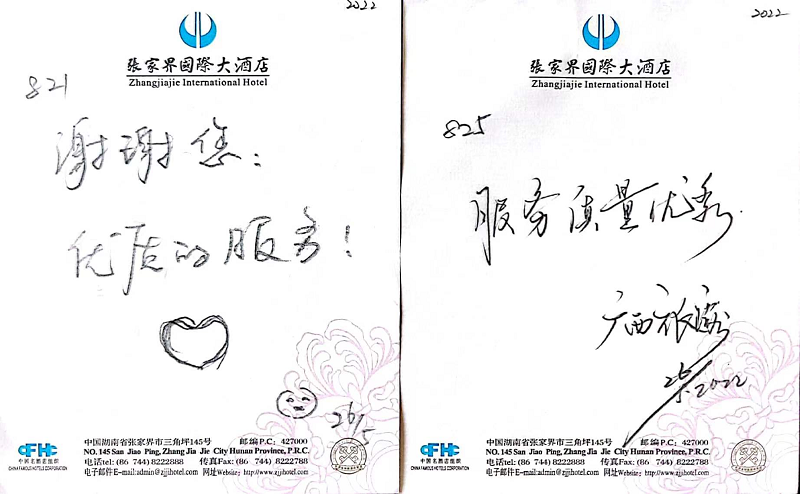 2022
張家界國際大酒店
Zhangjiajie International Hotel
821
谢谢您:
优质的服务!
26/5
CFHC
中国名酒店组织
CHINA FAMOUS HOTELS CORPORATION
中国湖南省张家界市三角坪145号 邮编P.C: 427000
NO. 145 San Jiao Ping, Zhang Jia Jie City Hunan Province, P.R.C.
电话tel: (86 744) 8222888 传真Fax: (86 744) 8222788
电子邮件E-mail:admin@zjjihotel.com 网址Website: http://www.zjjihotel.com
2022
張家界國際大酒店
Zhangjiajie International Hotel
825
服务质量优秀.
广西
2022
CFHC
中国名酒店组织
CHINA FAMOUS HOTELS CORPORATION
中国湖南省张家界市三角坪145号 邮编P.C: 427000
NO. 145 San Jiao Ping, Zhang Jia Jie City Hunan Province, P.R.C.
电话tel: (86 744) 8222888 传真Fax: (86 744) 8222788
电子邮件E-mail:admin@zjjihotel.com 网址Website: http://www.zjjihotel.com